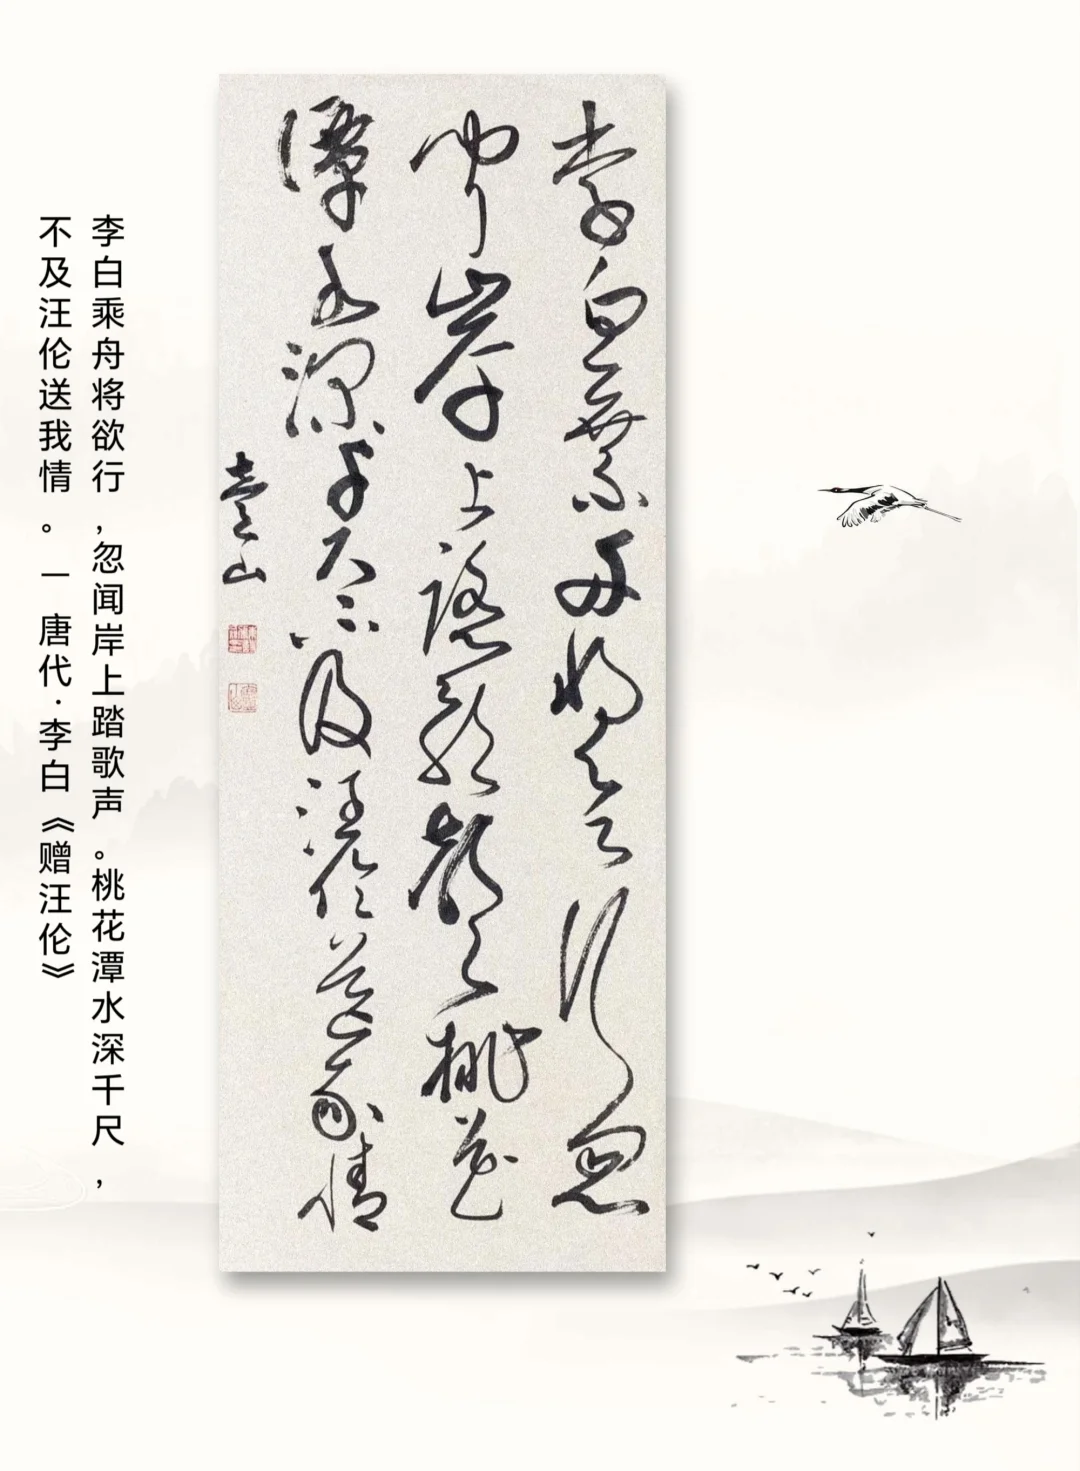 李白乘舟將欲行忽
聞岸上踏歌聲桃花
潭水深千尺不及汪倫送我情
李白乘舟将欲行，忽闻岸上踏歌声。桃花潭水深千尺，
不及汪伦送我情。— 唐代·李白《赠汪伦》